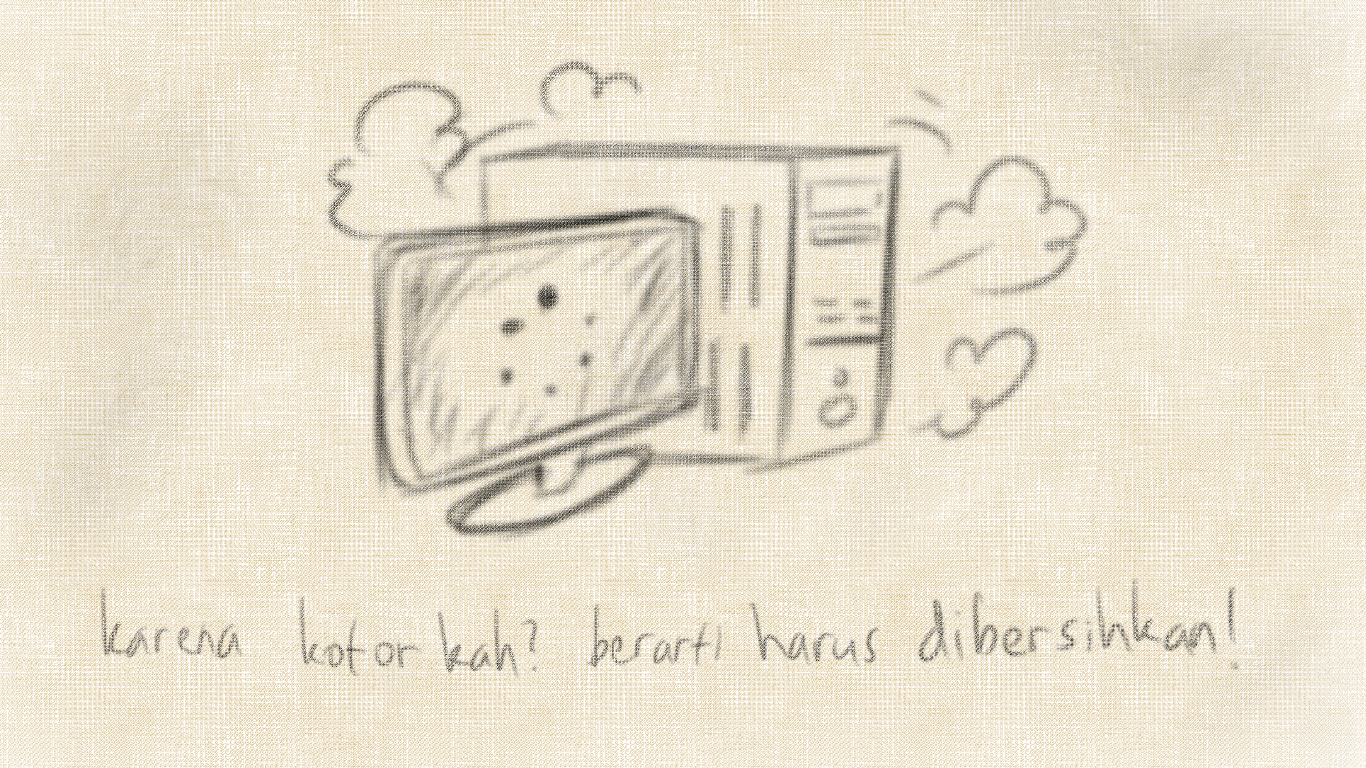 karena kotor kah? berarti harus dibersihkan!